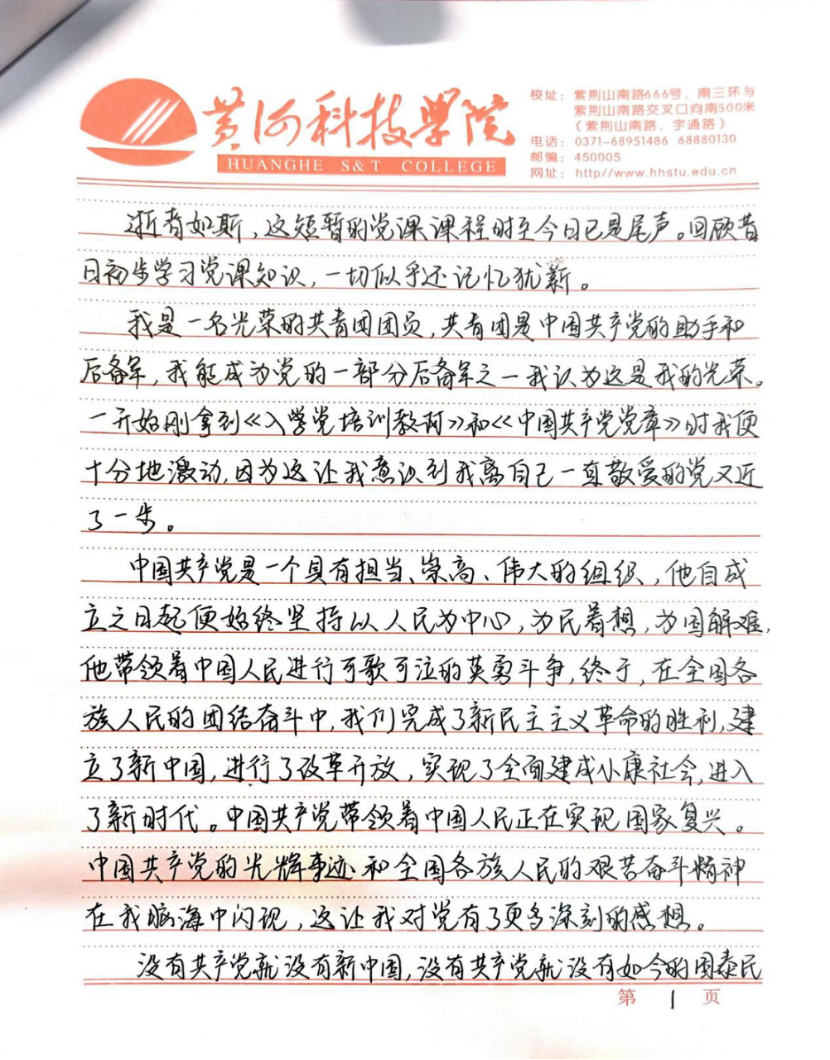 黄河科技学院
HUANGHE S&T COLLEGE
校址：紫荆山南路666号、南三环与
紫荆山南路交叉口向南500米
（紫荆山南路、宇通路）
电话：0371-68951486 68880130
邮编：450005
网址：http//www.hhstu.edu.cn
逝者如斯，这短暂的党课课程时至今日已是尾声。回顾昔
日初步学习党课知识，一切似乎还记忆犹新。
我是一名光荣的共青团团员，共青团是中国共产党的助手和
后备军，我能成为党的一部分后备军之一我认为这是我的光荣。
一开始刚拿到《入学党培训教材》和《中国共产党党章》时我便
十分地激动，因为这让我意识到我离自己一直敬爱的党又近
了一步。
中国共产党是一个具有担当、崇高、伟大的组织，他自成
立之日起便始终坚持以人民为中心，为民着想，为国解难，
他带领着中国人民进行可歌可泣的英勇斗争，终于，在全国各
族人民的团结奋斗中，我们完成了新民主主义革命的胜利，建
立了新中国，进行了改革开放，实现了全面建成小康社会，进入
了新时代。中国共产党带领着中国人民正在实现国家复兴。
中国共产党的光辉事迹和全国各族人民的艰苦奋斗精神
在我脑海中闪现，这让我对党有了更多深刻的感想。
没有共产党就没有新中国，没有共产党就没有如今的国泰民
第 1 页